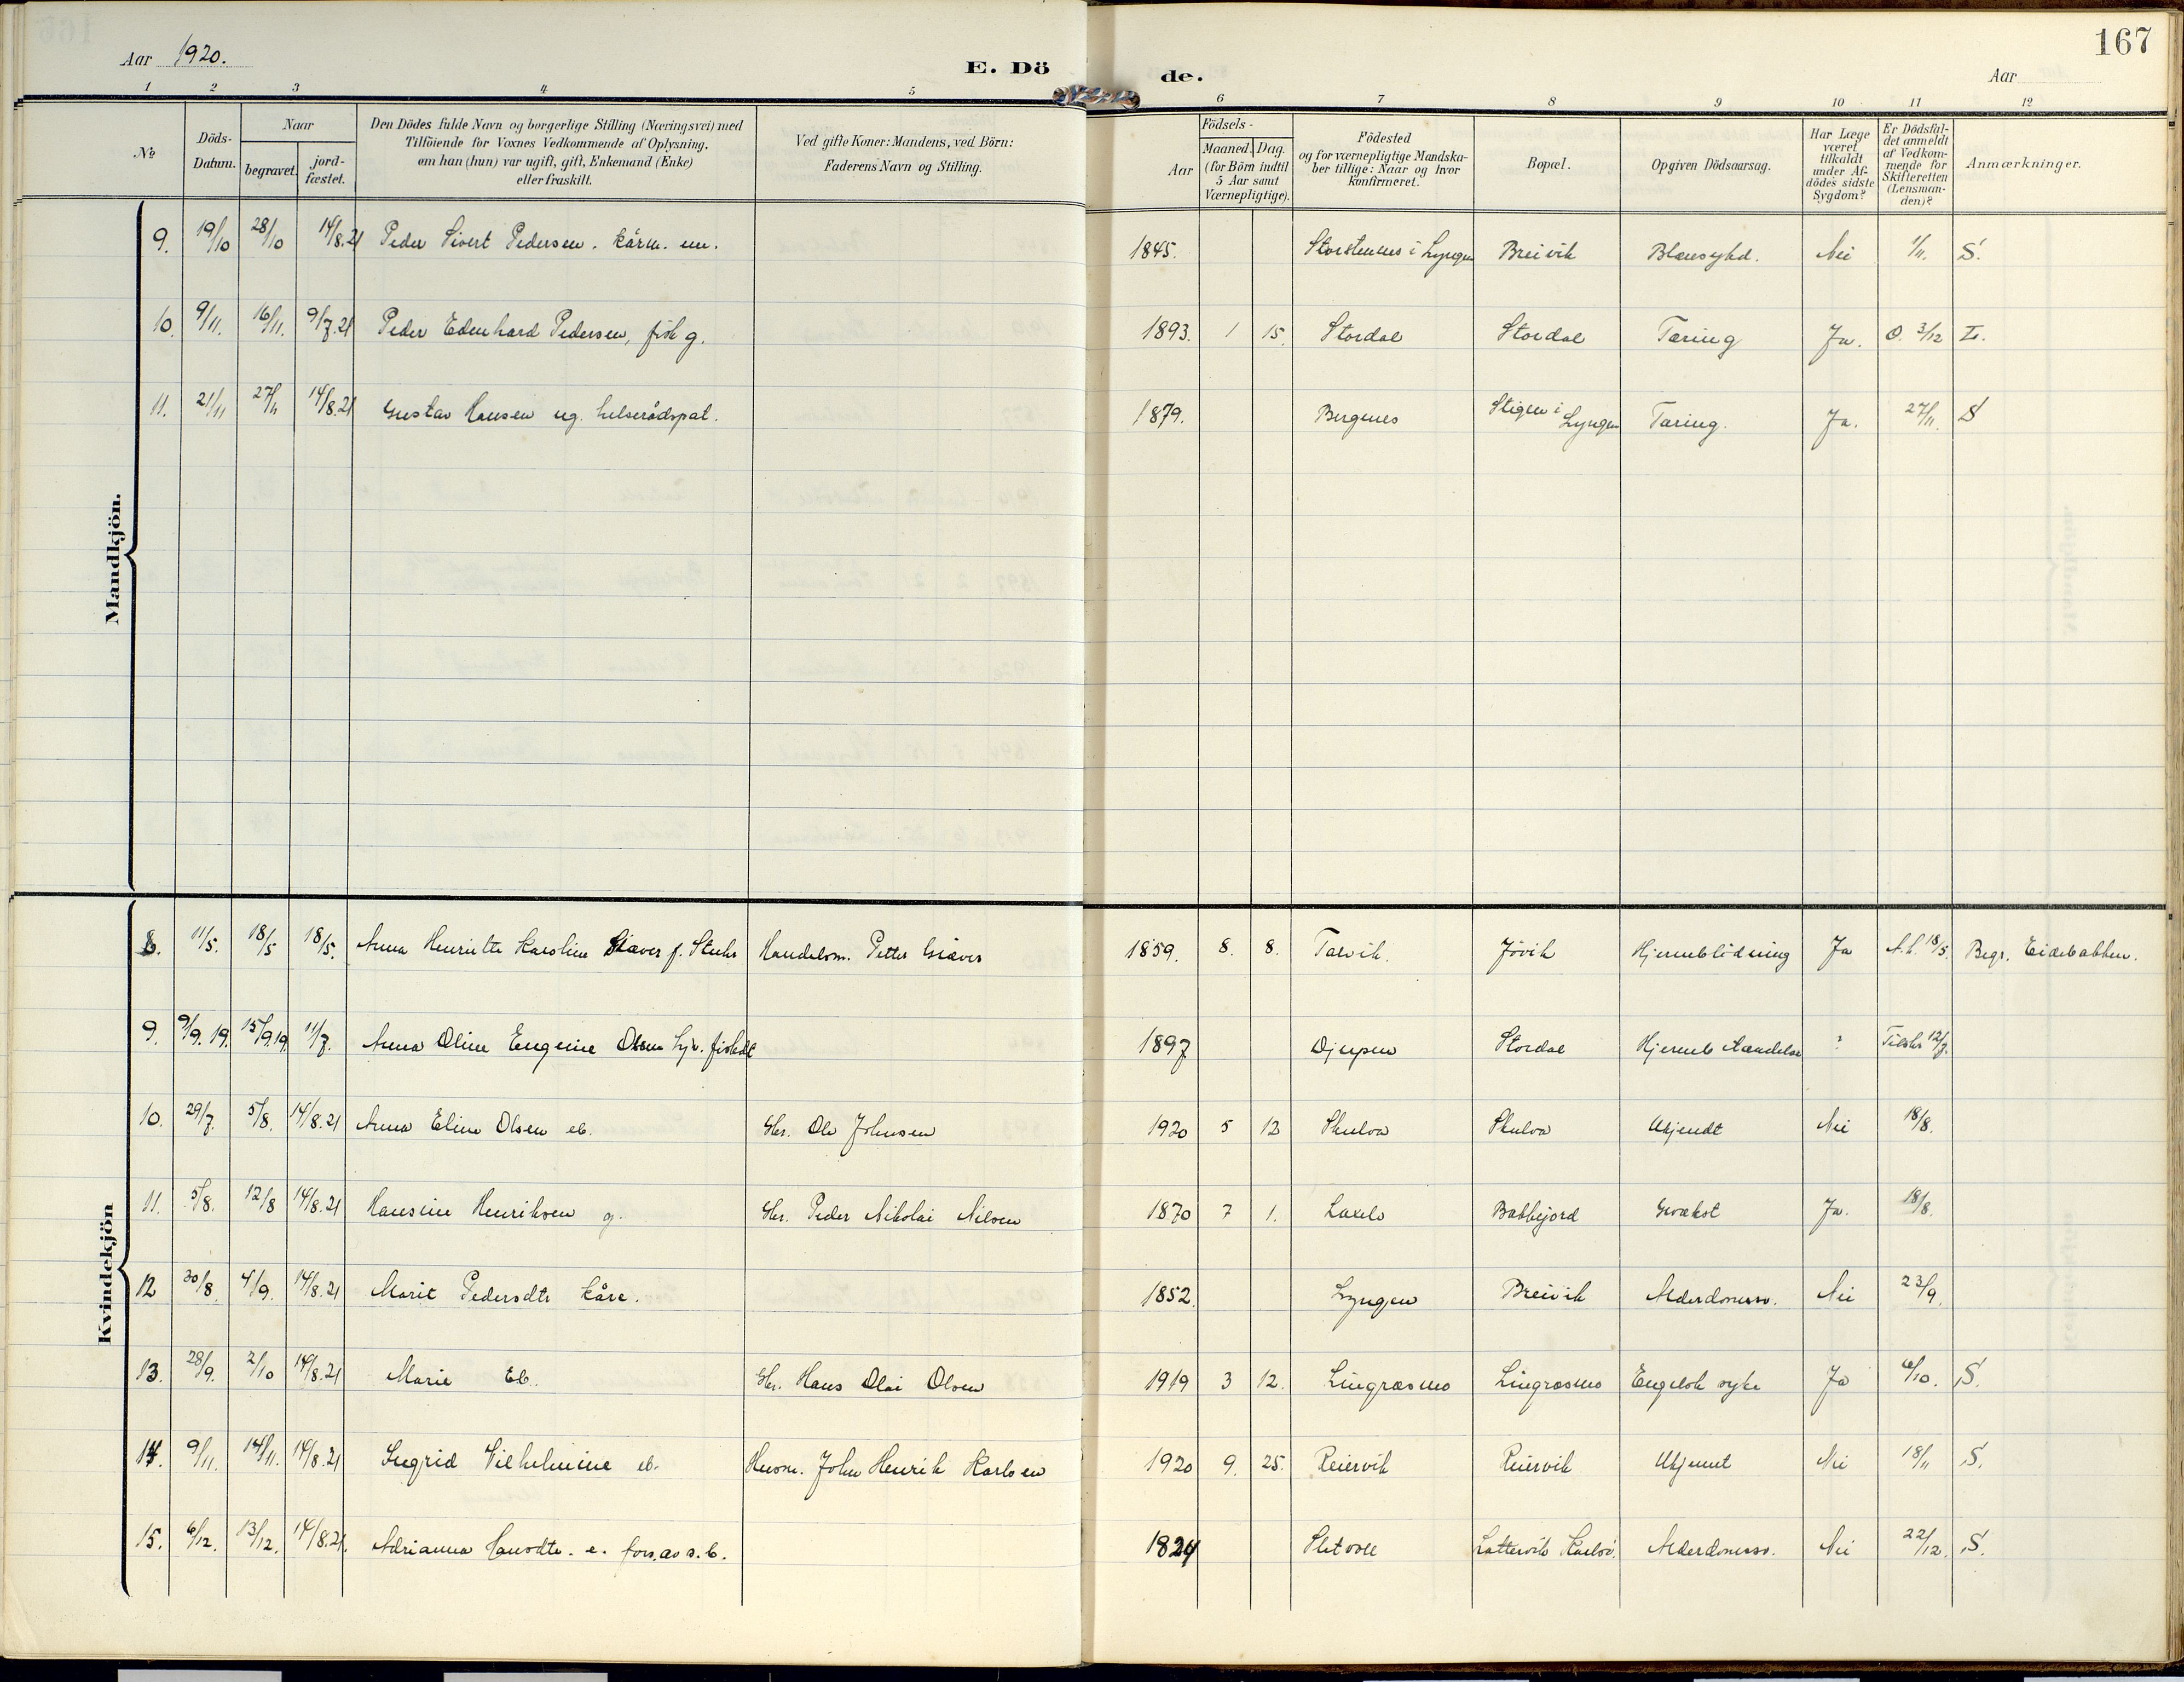 167
Aar 1920.
E. Dö de.
Aar
1 2 3 4 5 6 7 8 9 10 11 12
No
Döds-Datum.
Naar
begravet.
jord-fæstet.
Den Dödes fulde Navn og borgerlige Stilling (Næringsvei) med
Tilföiende for Voxnes Vedkommende af Oplysning,
om han (hun) var ugift, gift, Enkemand (Enke)
eller fraskilt.
Ved gifte Koner: Mandens, ved Börn:
Faderens Navn og Stilling.
Födsels-
Aar
Maaned. Dag.
(for Börn indtil
5 Aar samt
Værnepligtige).
Födested
og for værnepligtige Mandska-
ber tillige: Naar og hvor
konfirmeret.
Bopæl.
Opgiven Dödsaarsag.
Har Læge
været
tilkaldt
under Af-
dödes sidste
Sygdom?
Er Dödsfal-
det anmeldt
af Vedkom-
mende for
Skifteretten
(Lensman-
den)?
Anmærkninger.
Mandkjön.
9. 19/10 28/10 14/8.21 Peder Sivert Pedersen. kårm. em. 1845. i Lyngen Breivik Nei 1/11. S.
10. 9/11. 16/11. 9/7.21 Peder Edenhard Pedersen, fisk g. 1893. 1 15. Stordal Stordal Tæring Ja. O. 3/12
11. 21/11 27/11 14/8.21 Gustav Hansen ug. helserådspat. 1879. Bergnes Stigen i Lyngen Tæring. Ja. 27/11. S
Kvindekjön
8. 11/5. 18/5 18/5. Anna Henriette Karoline Giæver f. Stuhr Handelsm. Petter Giæver 1859. 8. 8. Talvik. Jövik Hjerneblödning Ja A.h. 18/5. Begr. Eidebakken.
9. 9/9.19. 15/9.19. 11/7. Anna Oline Eugenie Olsen 1897 Djupen Stordal ? 12/7.
10. 29/7. 5/8. 14/8.21 Anna Eline Olsen eb. Gbr. Ole Johnsen 1920 5 13 Skulva Skulva Ukjendt Nei 18/8.
11. 5/8. 12/8 14/8.21 Hansine Henriksen g. Gbr. Peder Nikolai Nilsen 1870 7 1. Bakkejord Svækst Ja. 18/8.
12 30/8. 4/9. 14/8.21 Marit Pedersdtr kåre. 1852. Lyngen Breivik Alderdomssv. Nei 23/9.
13. 28/9. 2/10 14/8.21 Marie Eb. Gbr. Hans Olai Olsen 1919 3 12. Lingrasmo Lingrasmo Engelsk syke Ja 6/10. S.
14. 9/11. 14/11. 14/8.21 Ingrid Vilhelmine eb. Husm. John Henrik Karlsen 1920 9. 25. Reiervik Reiervik Ukjent Nei 18/11 S.
15. 6/12. 13/12. 14/8.21. Adrianna Hansdtr. e. fors. av s.b. 1824 Sletvoll Lattervik Karlsö. Alderdomssv. Nei 22/12. S.